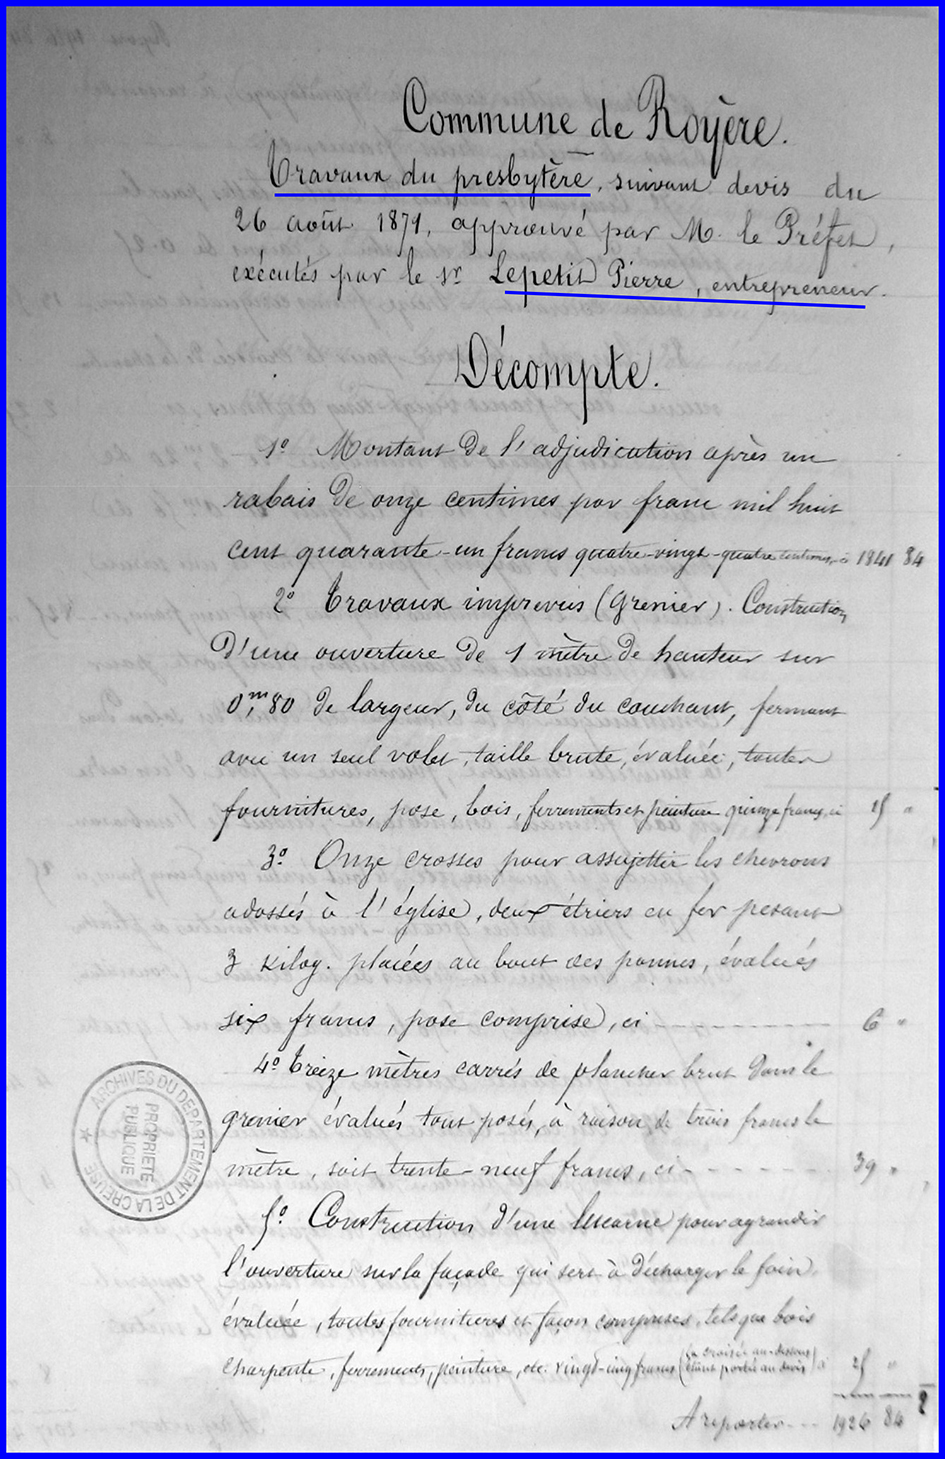 Commune de Royère.
Travaux du presbytère, suivant devis du
26 août 1871, approuvé par M. le Préfet,
exécutés par le sr Lepetit Pierre, entrepreneur.
Décompte.
1º Montant de l'adjudication après un
rabais de onze centimes par franc mil huit
cent quarante-un francs quatre-vingt-quatre centimes, ci 1841 84
2º Travaux imprévus (grenier). Construction
d'une ouverture de 1 mètre de hauteur sur
0m,80 de largeur, du côté du couchant, fermant
avec un seul volet, taille brute, évaluée, toutes
fournitures, pose, bois, ferrements et peinture quinze francs, ci 15 "
3º Onze crosses pour assujettir les chevrons
adossés à l'église, deux étriers en fer pesant
3 kilog. placées au bout des pannes, évalués
six francs, pose comprise, ci - - - - 6 "
4º Treize mètres carrés de plancher brut dans le
grenier évalués tout posés, à raison de trois francs le
mètre, soit trente-neuf francs, ci - - - - 39 "
5º Construction d'une lucarne pour agrandir
l'ouverture sur la façade qui sert à décharger le foin,
évaluée, toutes fournitures et façon comprises, tels que bois
charpente, ferrements, peinture, etc. vingt-cinq francs (la croisée au-dessous étant portée au devis) ci 25 "
A reporter - - - 1926 84
ARCHIVES DU DÉPARTEMENT DE LA CREUSE
PROPRIÉTÉ
PUBLIQUE